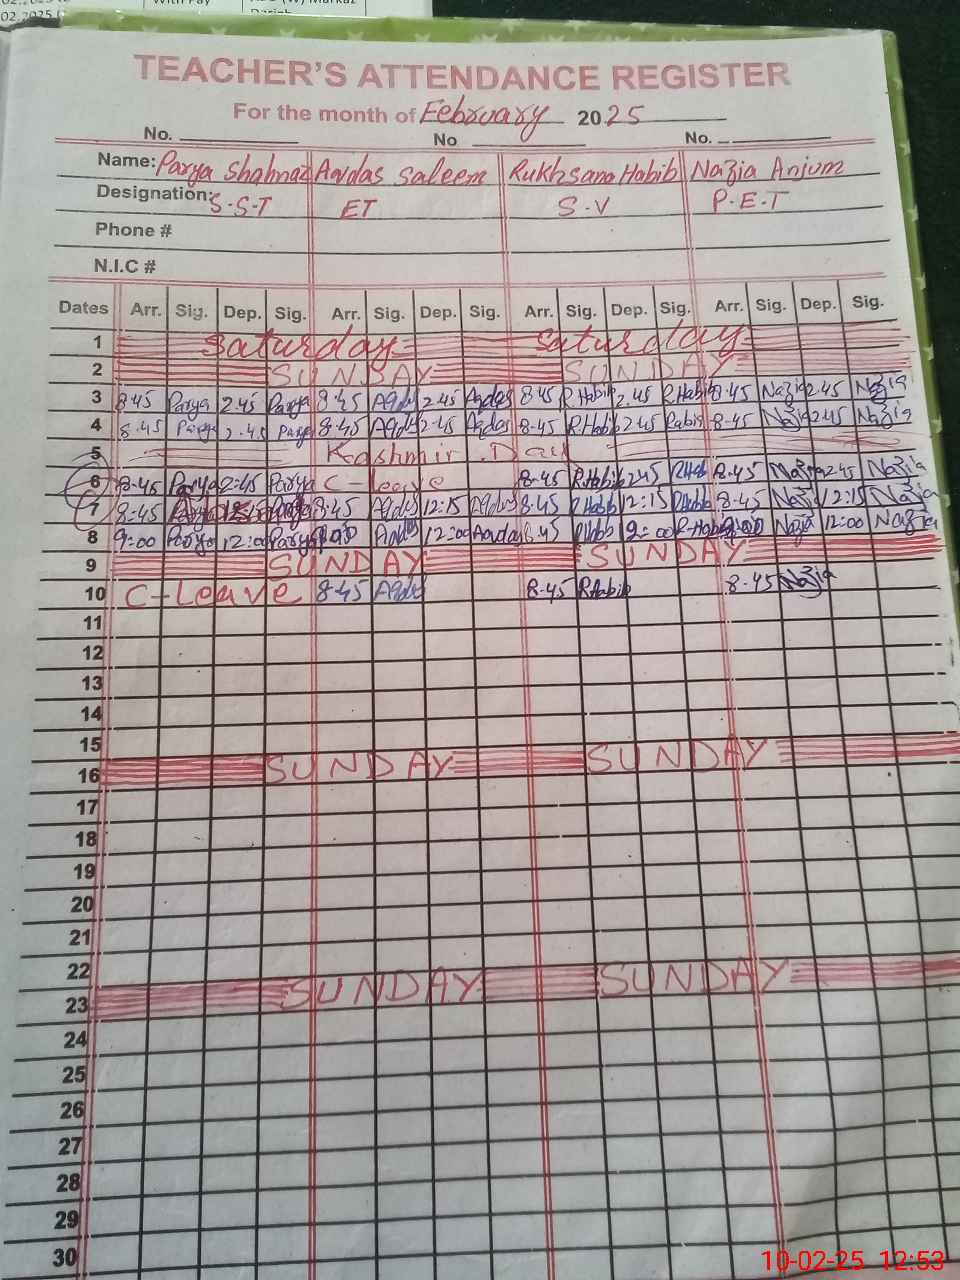 02.2025
With Pay
TEACHER'S ATTENDANCE REGISTER
For the month of February 2025
No. No No.
Name: Parya Shahnaz Aqdas Saleem Rukhsana Habib Nazia Anjum
Designation: S.S.T ET S.V P.E.T
Phone #
N.I.C #
Dates Arr. Sig. Dep. Sig. Arr. Sig. Dep. Sig. Arr. Sig. Dep. Sig. Arr. Sig. Dep. Sig.
1 Saturday Saturday
2 SUNDAY SUNDAY
3 8:45 Parya 2:45 Parya 8:45 Aqdas 2:45 Aqdas 8:45 R.Habib 2:45 R.Habib 8:45 Nazia 2:45 Nazia
4 8:45 Parya 2:45 Parya 8:45 Aqdas 2:45 Aqdas 8:45 R.Habib 2:45 Rabib 8:45 Nazia 2:45 Nazia
5 Kashmir Day
6 8:45 Parya 2:45 Parya C-leave 8:45 R.Habib 2:45 RHab 8:45 Nazia 2:45 Nazia
7 8:45 Parya 8:45 Aqdas 12:15 Aqdas 8:45 RHabib 12:15 RHabib 8:45 Nazia 12:15 Nazia
8 9:00 Parya 12:00 Parya Aqdas 12:00 Aqdas 8:45 R-Habib Nazia 12:00 Nazia
9 SUNDAY SUNDAY
10 C-Leave 8:45 Aqdas 8:45 RHabib 8:45 Nazia
11
12
13
14
15
16 SUNDAY SUNDAY
17
18
19
20
21
22
23 SUNDAY SUNDAY
24
25
26
27
28
29
30
10-02-25 12:53